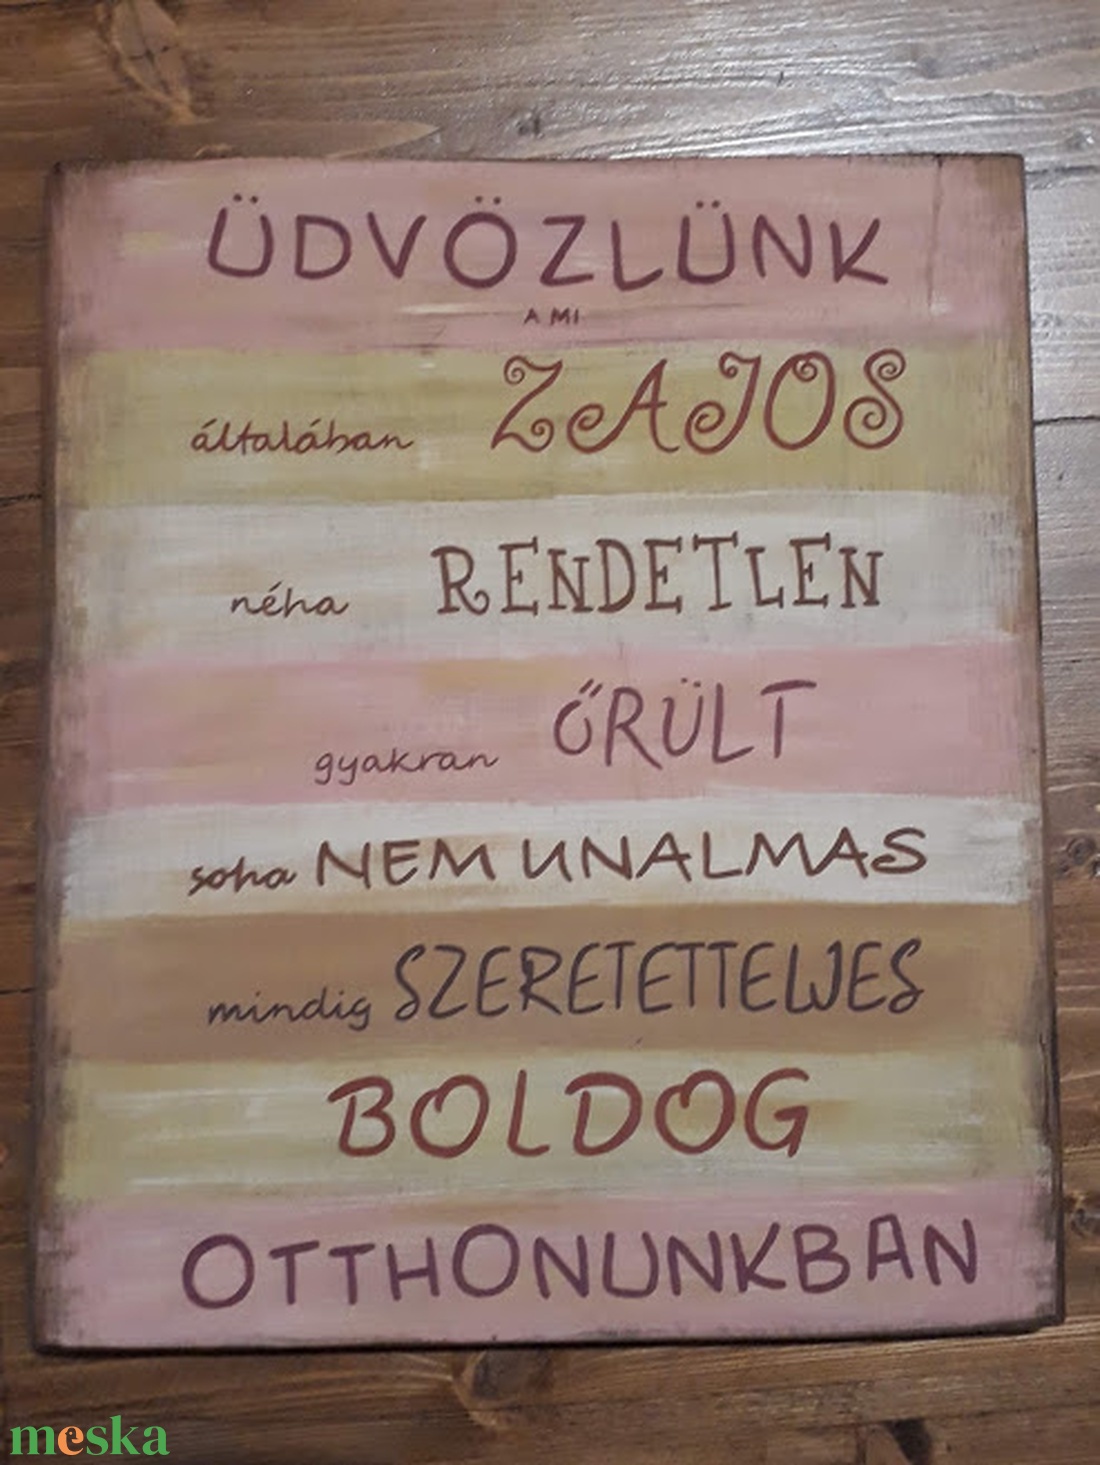 ÜDVÖZLÜNK
A MI
általában ZAJOS
néha RENDETLEN
gyakran ŐRÜLT
soha NEM UNALMAS
mindig SZERETETTELJES
BOLDOG
OTTHONUNKBAN
meska